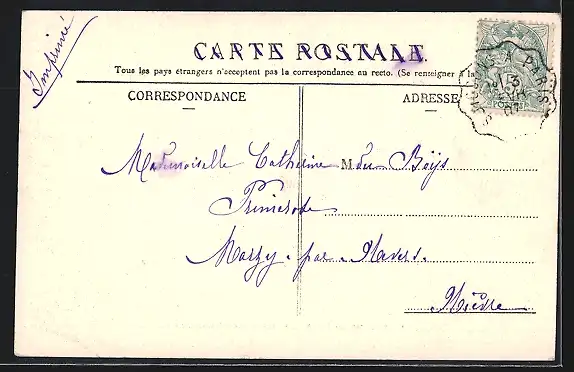 Imprimé
CARTE POSTALE.
Tous les pays étrangers n'acceptent pas la correspondance au recto. (Se renseigner à la
CORRESPONDANCE
ADRESSE
À PARIS
07
POSTES
Mademoiselle Catherine M du Boÿs
Primerode
Marzy-par-Nevers.
Nièvre